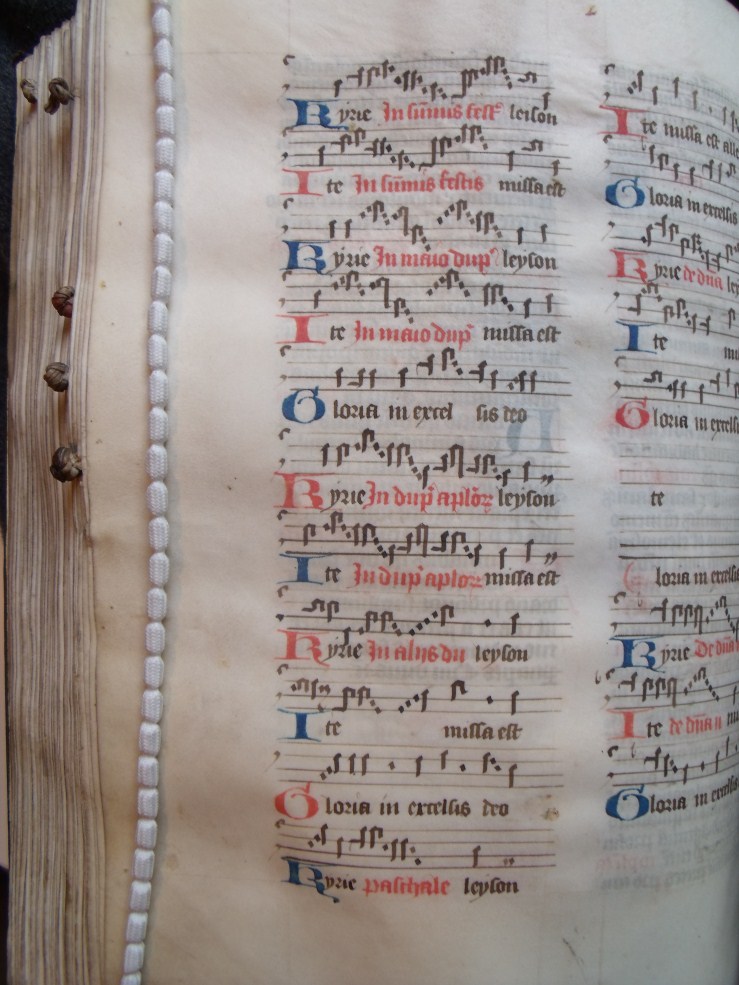 Kyrie In sum̄is fest⁹ leison
Ite In sum̄is festis missa est
Kyrie In maio dup' leyson
Ite In maio dup' missa est
Gloria in excel sis deo
Kyrie In dup' aplōꝝ leyson
Ite In dup' aploꝝ missa est
Kyrie In alijs du leyson
Ite missa est
Gloria in excelsis deo
Kyrie paschale leyson
Ite missa est alle
Gloria in excelsis
Kyrie de dn̄a ley
Ite
Gloria in excelsis
te
loria in excelsis
Kyrie De dn̄a
Ite de dn̄a
Gloria in excelsis